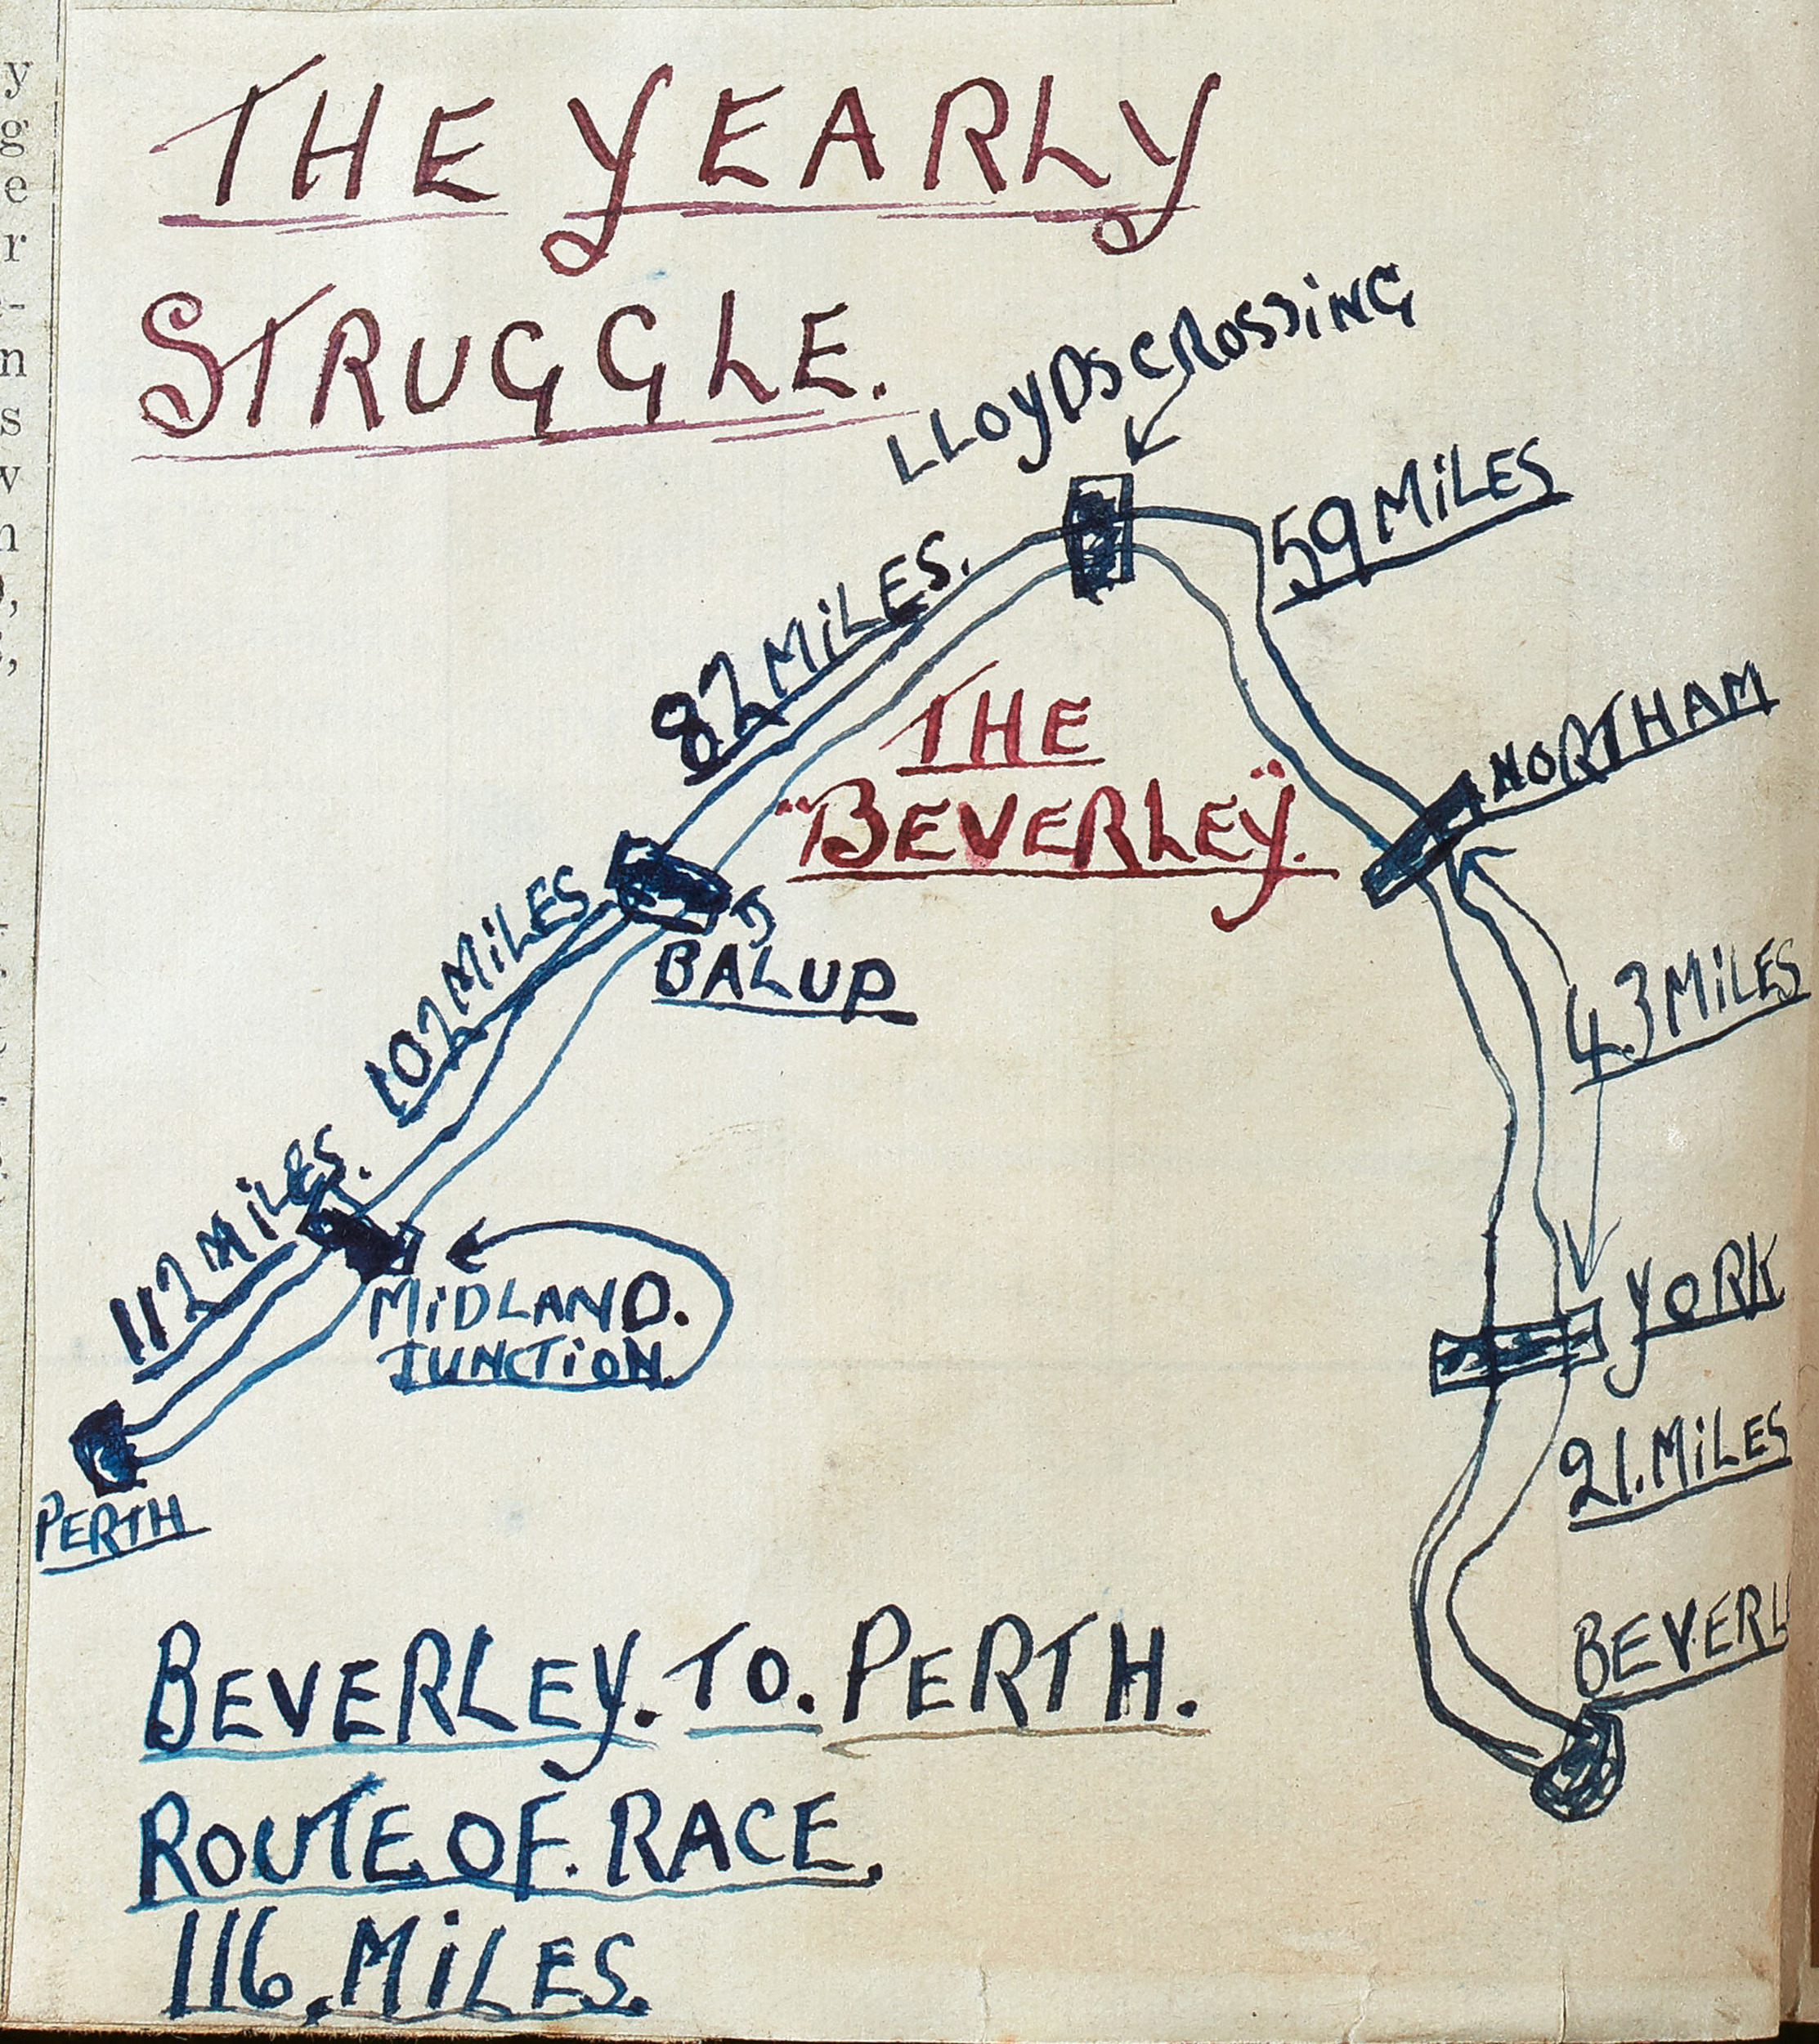 THE YEARLY
STRUGGLE.
LLOYDS CROSSING
59 MILES
82 MILES.
NORTHAM
THE
"BEVERLEY".
102 MILES
BALUP
43 MILES
112 MILES.
MIDLAND.
JUNCTION
YORK
21. MILES
PERTH
BEVERL
BEVERLEY. TO. PERTH.
ROUTE OF. RACE.
116. MILES.
y
g
e
r
n
s
w